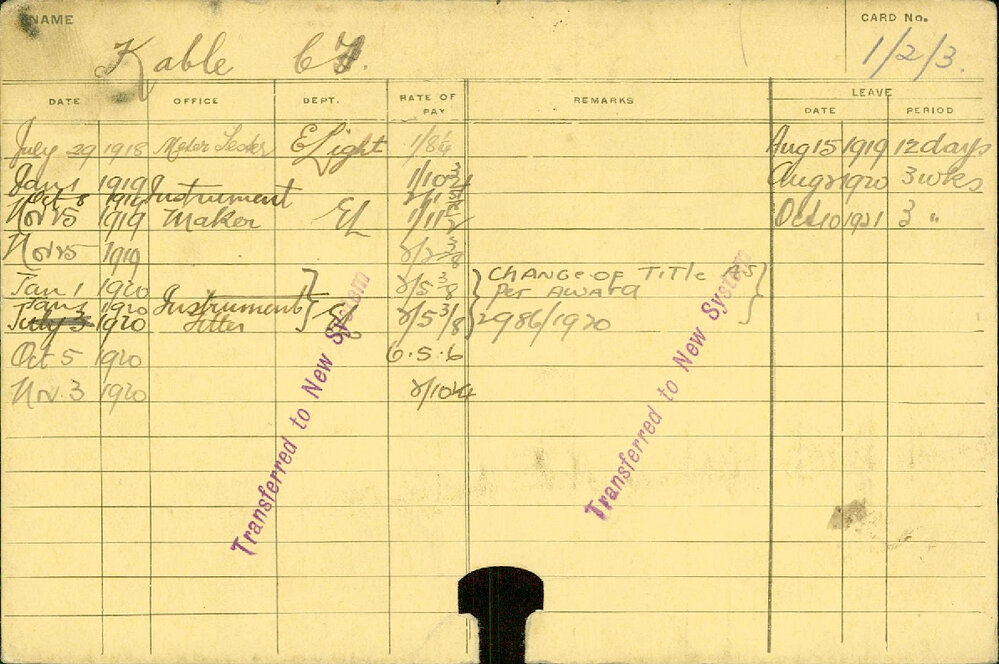 NAME
CARD No.
Kable C
1/2/3.
DATE OFFICE DEPT. RATE OF PAY REMARKS LEAVE
DATE PERIOD
July 29 1918 Meter Tester E Light Aug 15 1919 12 days
Jan 1 1919 Aug 2 1920 3 wks
Oct 8 Instrument
Nov 25 1919 Maker EL Oct 10 1921 3 "
Nov 25 1919
Jan 1 1920 2/5 3/8 Change of Title as
Per Award
Jan 1 1920 Instrument
July 3 1920 fitter EL 2/5 3/8 2986/1920
Oct 5 1920 6.5.6
Nov. 3 1920
Transferred to New System
Transferred to New System